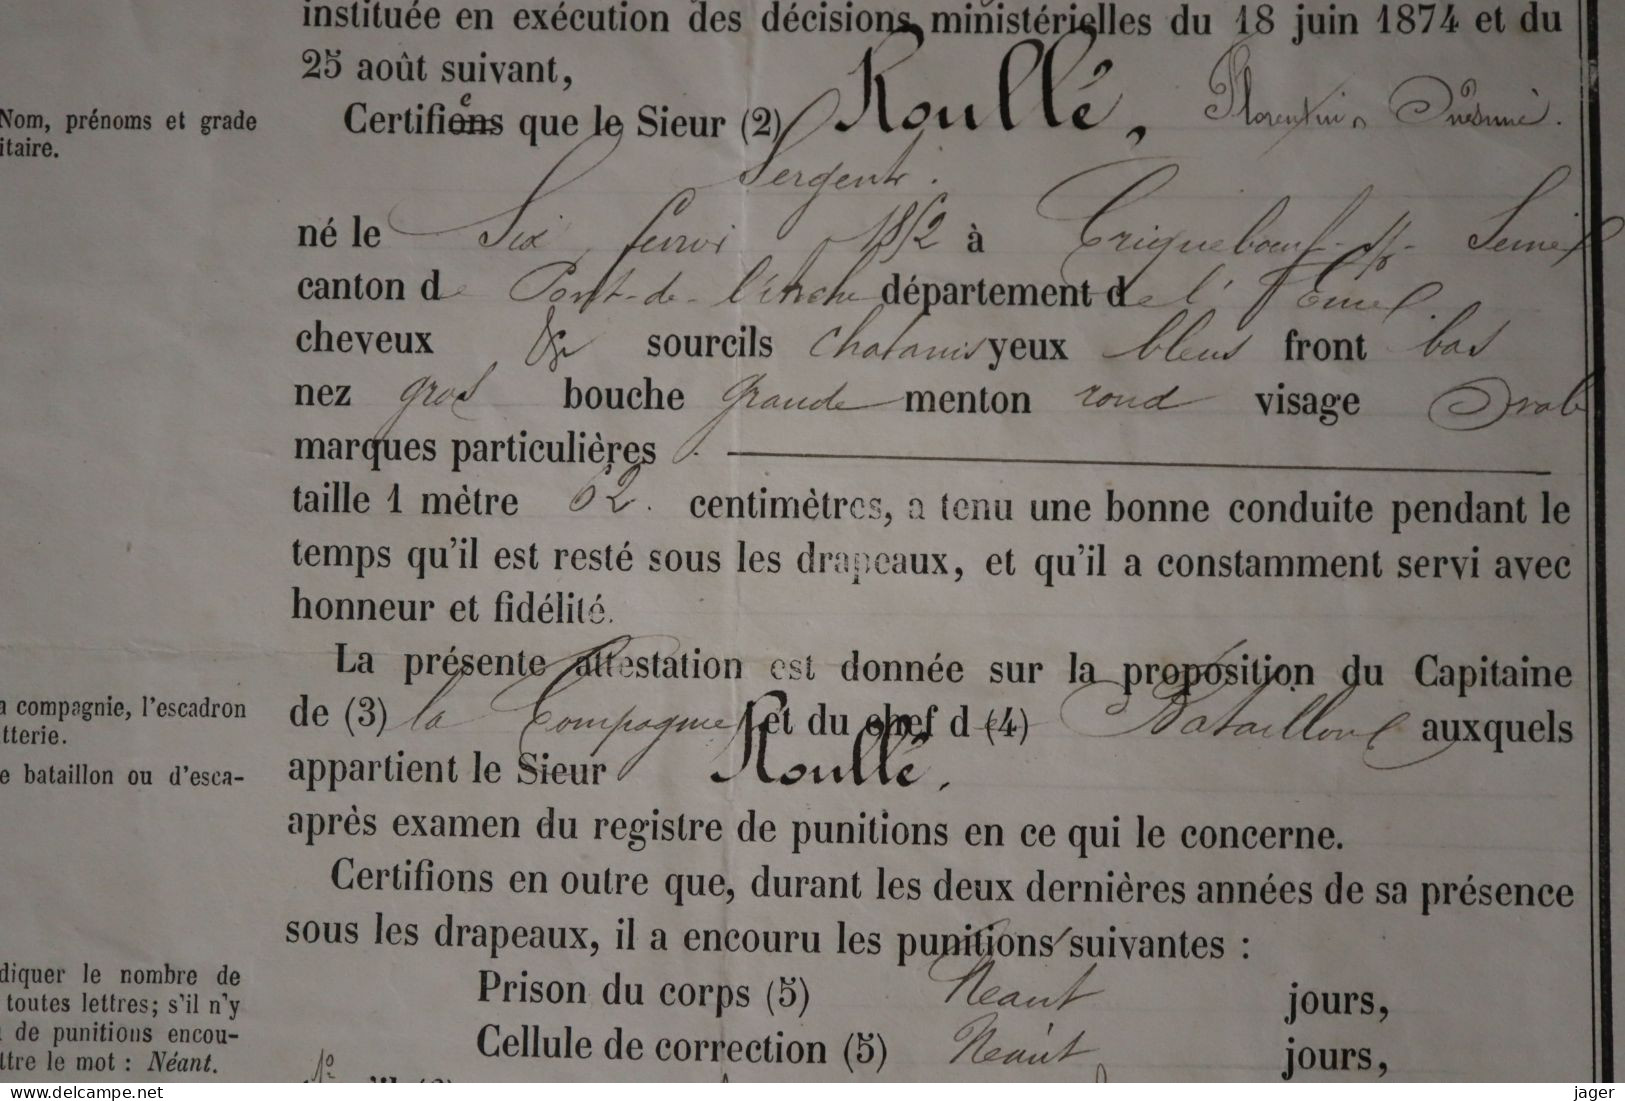 instituée en exécution des décisions ministérielles du 18 juin 1874 et du
25 août suivant,
Nom, prénoms et grade
itaire.
Certifions que le Sieur (2) Roullé, Florentin
Sergent.
né le Six 1852 à Criquebœuf-s/- Seine
canton de Pont-de-l'Arche département de l'Eure.
cheveux sourcils chatains yeux bleus front bas
nez gros bouche grande menton rond visage Ovale
marques particulières
taille 1 mètre 62. centimètres, a tenu une bonne conduite pendant le
temps qu'il est resté sous les drapeaux, et qu'il a constamment servi avec
honneur et fidélité.
La présente attestation est donnée sur la proposition du Capitaine
a compagnie, l'escadron
tterie.
de (3) la Compagnie et du chef de (4) Bataillon auxquels
e bataillon ou d'esca-
appartient le Sieur Roullé,
après examen du registre de punitions en ce qui le concerne.
Certifions en outre que, durant les deux dernières années de sa présence
sous les drapeaux, il a encouru les punitions suivantes :
diquer le nombre de
toutes lettres; s'il n'y
de punitions encou-
ttre le mot : Néant.
Prison du corps (5) Néant jours,
Cellule de correction (5) Néant jours,
delcampe.net
jager